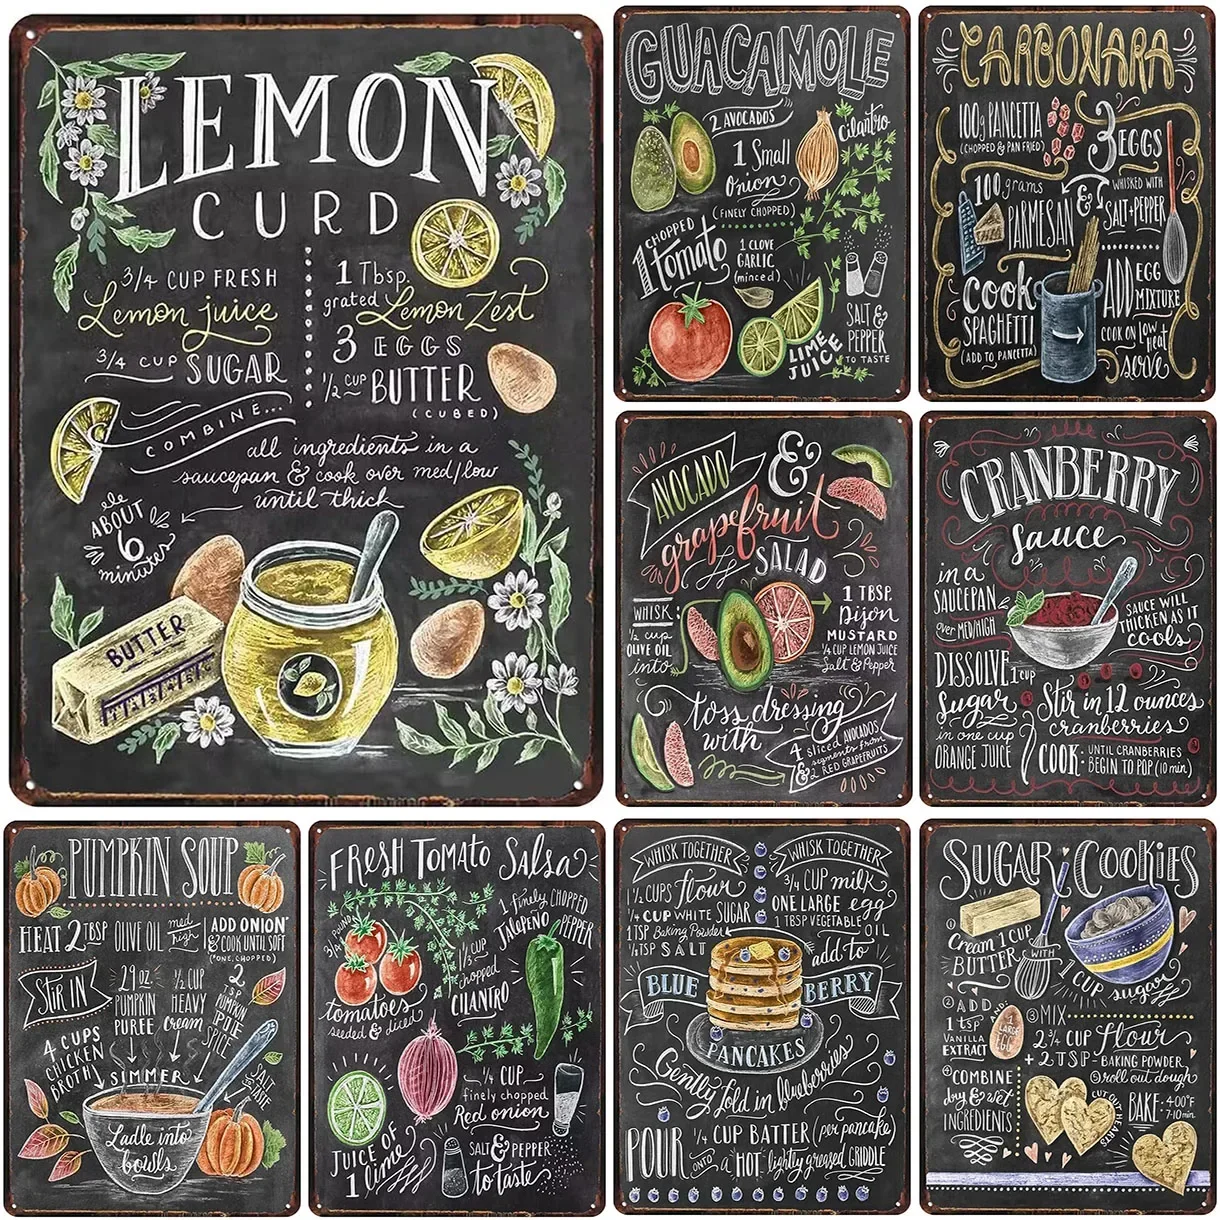 LEMON
CURD
3/4 CUP FRESH
Lemon juice
3/4 CUP SUGAR
1 Tbsp.
grated Lemon Zest
3 EGGS
1/2 CUP BUTTER
(CUBED)
COMBINE...
all ingredients in a
saucepan & cook over med/low
until thick
ABOUT
6
minutes
BUTTER
GUACAMOLE
2 AVOCADOS
1 Small
Onion
(FINELY CHOPPED)
Cilantro
1 CHOPPED
Tomato
1 CLOVE
GARLIC
(minced)
LIME
JUICE
SALT &
PEPPER
TO TASTE
CARBONARA
100g PANCETTA
(CHOPPED & PAN FRIED)
3 EGGS
100 grams
PARMESAN
&
WHISKED WITH
SALT+PEPPER
COOK
SPAGHETTI
(ADD TO PANCETTA)
ADD EGG
MIXTURE
COOK ON LOW heat
serve
AVOCADO
&
grapefruit
SALAD
WHISK
1/2 cup
OLIVE OIL
into
1 TBSP.
Dijon
MUSTARD
1/4 CUP LEMON JUICE
Salt & Pepper
toss dressing
with
4 sliced AVOCADOS
& segments from
2 RED GRAPEFRUITS
CRANBERRY
Sauce
in a
SAUCEPAN
over MED/HIGH
DISSOLVE 1 cup
Sugar
in one cup
ORANGE JUICE
SAUCE WILL
THICKEN AS IT
cools
Stir in 12 ounces
cranberries
COOK UNTIL CRANBERRIES
BEGIN TO POP (10 min)
PUMPKIN SOUP
HEAT 2 TBSP OLIVE OIL med high
ADD ONION*
& COOK UNTIL SOFT
(*ONE, CHOPPED)
STIR IN
29 oz.
PUMPKIN
PUREE
1/2 CUP
HEAVY
Cream
2
TSP
PUMPKIN
PIE
SPICE
4 CUPS
CHICKEN
BROTH
SIMMER
SALT
TO TASTE
Ladle into
bowls
FRESH TOMATO Salsa
3/4 POUND
tomatoes
seeded & diced
1 finely CHOPPED
JALAPENO PEPPER
1/3 CUP
chopped
CILANTRO
1/4 CUP
finely chopped
Red onion
JUICE OF
1 lime
SALT & PEPPER
to taste
WHISK TOGETHER
1 1/2 CUPS flour
1/4 CUP WHITE SUGAR
1 TSP Baking Powder
1/2 TSP SALT
WHISK TOGETHER
3/4 CUP milk
ONE LARGE egg
1 TBSP VEGETABLE OIL
add to
BLUE BERRY
PANCAKES
Gently fold in blueberries
POUR 1/4 CUP BATTER (per pancake)
ONTO a HOT lightly greased GRIDDLE
SUGAR COOKIES
1 Cream 1 CUP
BUTTER WITH
1 CUP sugar
2 ADD
1 tsp
VANILLA
EXTRACT
AND
1
LARGE
EGG
3 MIX
2 3/4 CUP flour
+ 2 TSP BAKING POWDER
4 COMBINE
dry & wet
INGREDIENTS
5 roll out dough
CUT OUT HEARTS
BAKE 400°F
7-10 min.